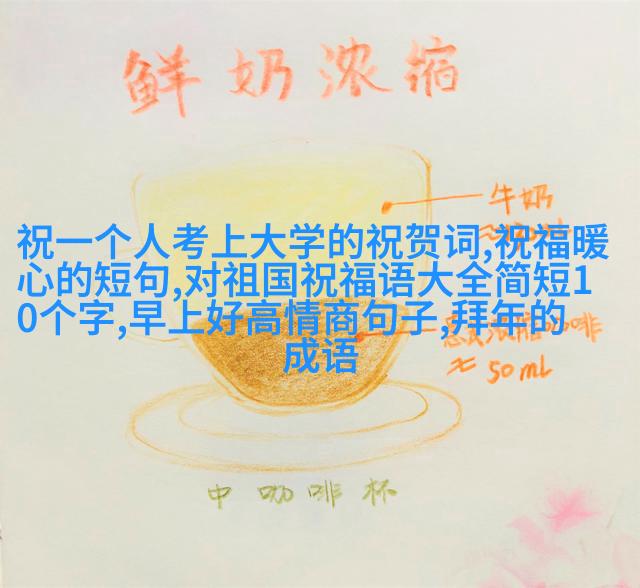 鲜奶浓缩
牛奶
祝一个人考上大学的祝贺词,祝福暖
心的短句,对祖国祝福语大全简短1
0个字,早上好高情商句子,拜年的
成语
≈ 50mL
中咖啡杯